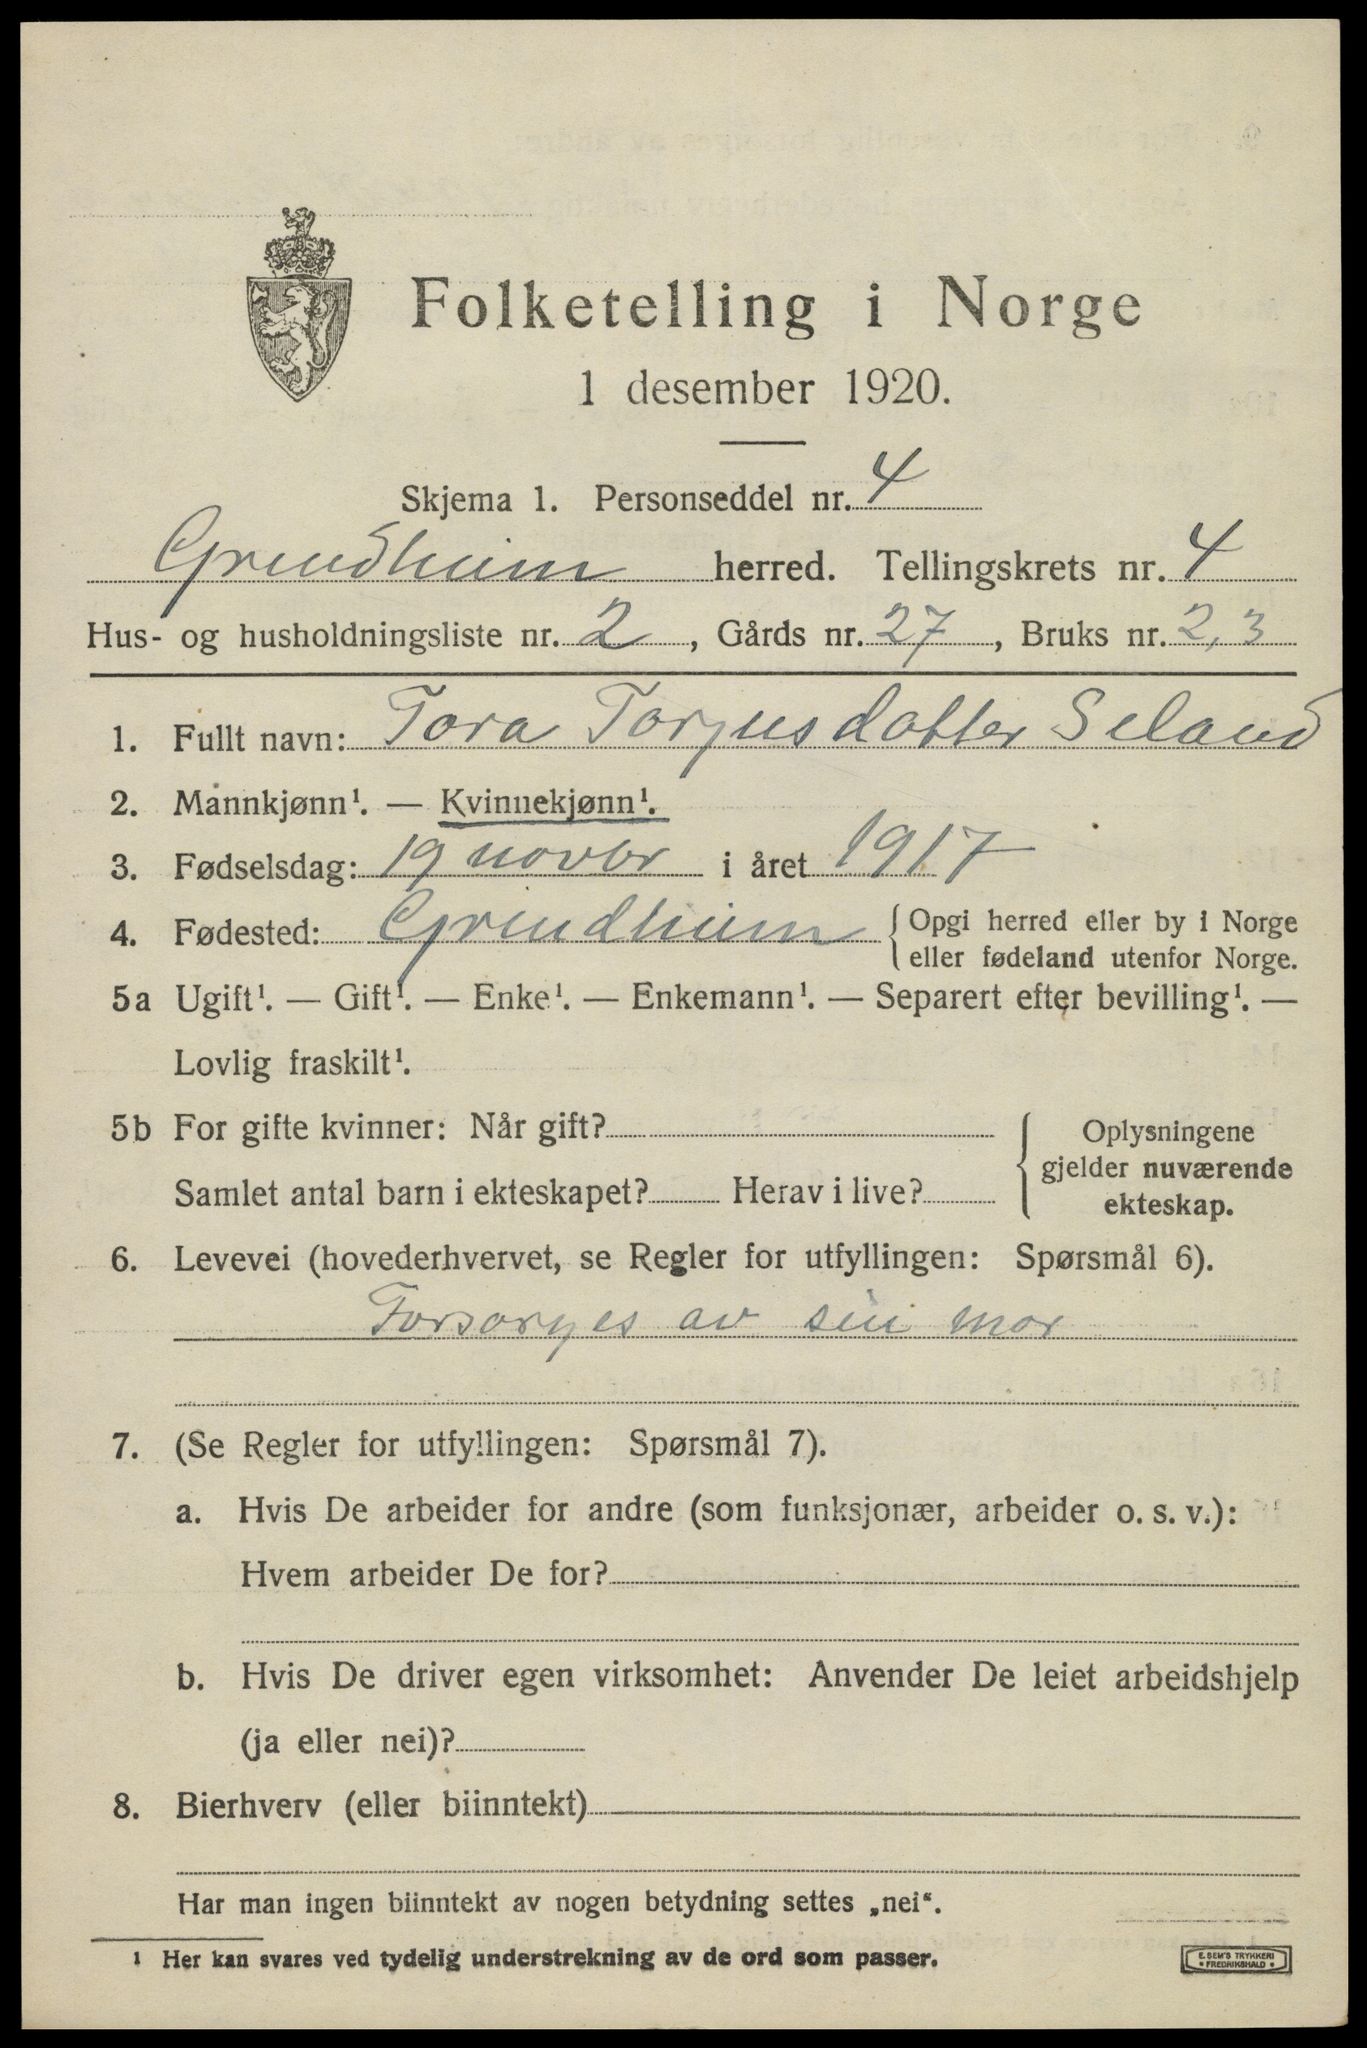 Folketelling i Norge
1 desember 1920.
Skjema 1. Personseddel nr. 4
Grendheim herred. Tellingskrets nr. 4
Hus- og husholdningsliste nr. 2, Gårds nr. 27, Bruks nr. 2, 3
1. Fullt navn: Tora Torjusdatter Seland
2. Mannkjønn¹. — Kvinnekjønn¹.
3. Fødselsdag: 19 novbr i året 1917
4. Fødested: Grendheim { Opgi herred eller by i Norge
eller fødeland utenfor Norge.
5a Ugift¹. — Gift¹. — Enke¹. — Enkemann¹. — Separert efter bevilling¹. —
Lovlig fraskilt¹.
5b For gifte kvinner: Når gift? { Oplysningene
gjelder nuværende
Samlet antal barn i ekteskapet? Herav i live?
ekteskap.
6. Levevei (hovederhvervet, se Regler for utfyllingen: Spørsmål 6).
Forsørges av sin mor
7. (Se Regler for utfyllingen: Spørsmål 7).
a. Hvis De arbeider for andre (som funksjonær, arbeider o. s. v.):
Hvem arbeider De for?
b. Hvis De driver egen virksomhet: Anvender De leiet arbeidshjelp
(ja eller nei)?
8. Bierhverv (eller biinntekt)
Har man ingen biinntekt av nogen betydning settes „nei“.
¹ Her kan svares ved tydelig understrekning av de ord som passer.
E. SEM'S TRYKKERI
• FREDRIKSHALD •